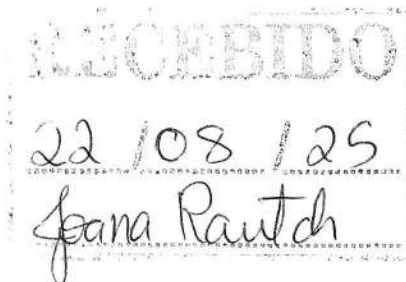 RECEBIDO
22/08/25
Joana Rautch